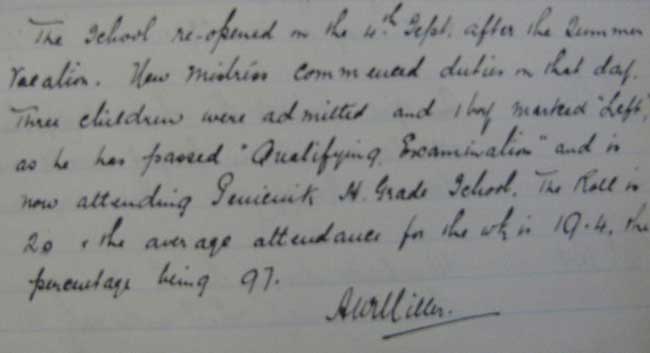 The School re-opened on the 4th Sept. after the Summer
Vacation. New Mistress commenced duties on that day.
Three children were admitted and 1 boy marked "Left",
as he has passed "Qualifying Examination" and is
now attending Penicuik H. Grade School. The Roll is
20 & the average attendance for the wk is 19.4, the
percentage being 97.
A W Miller.